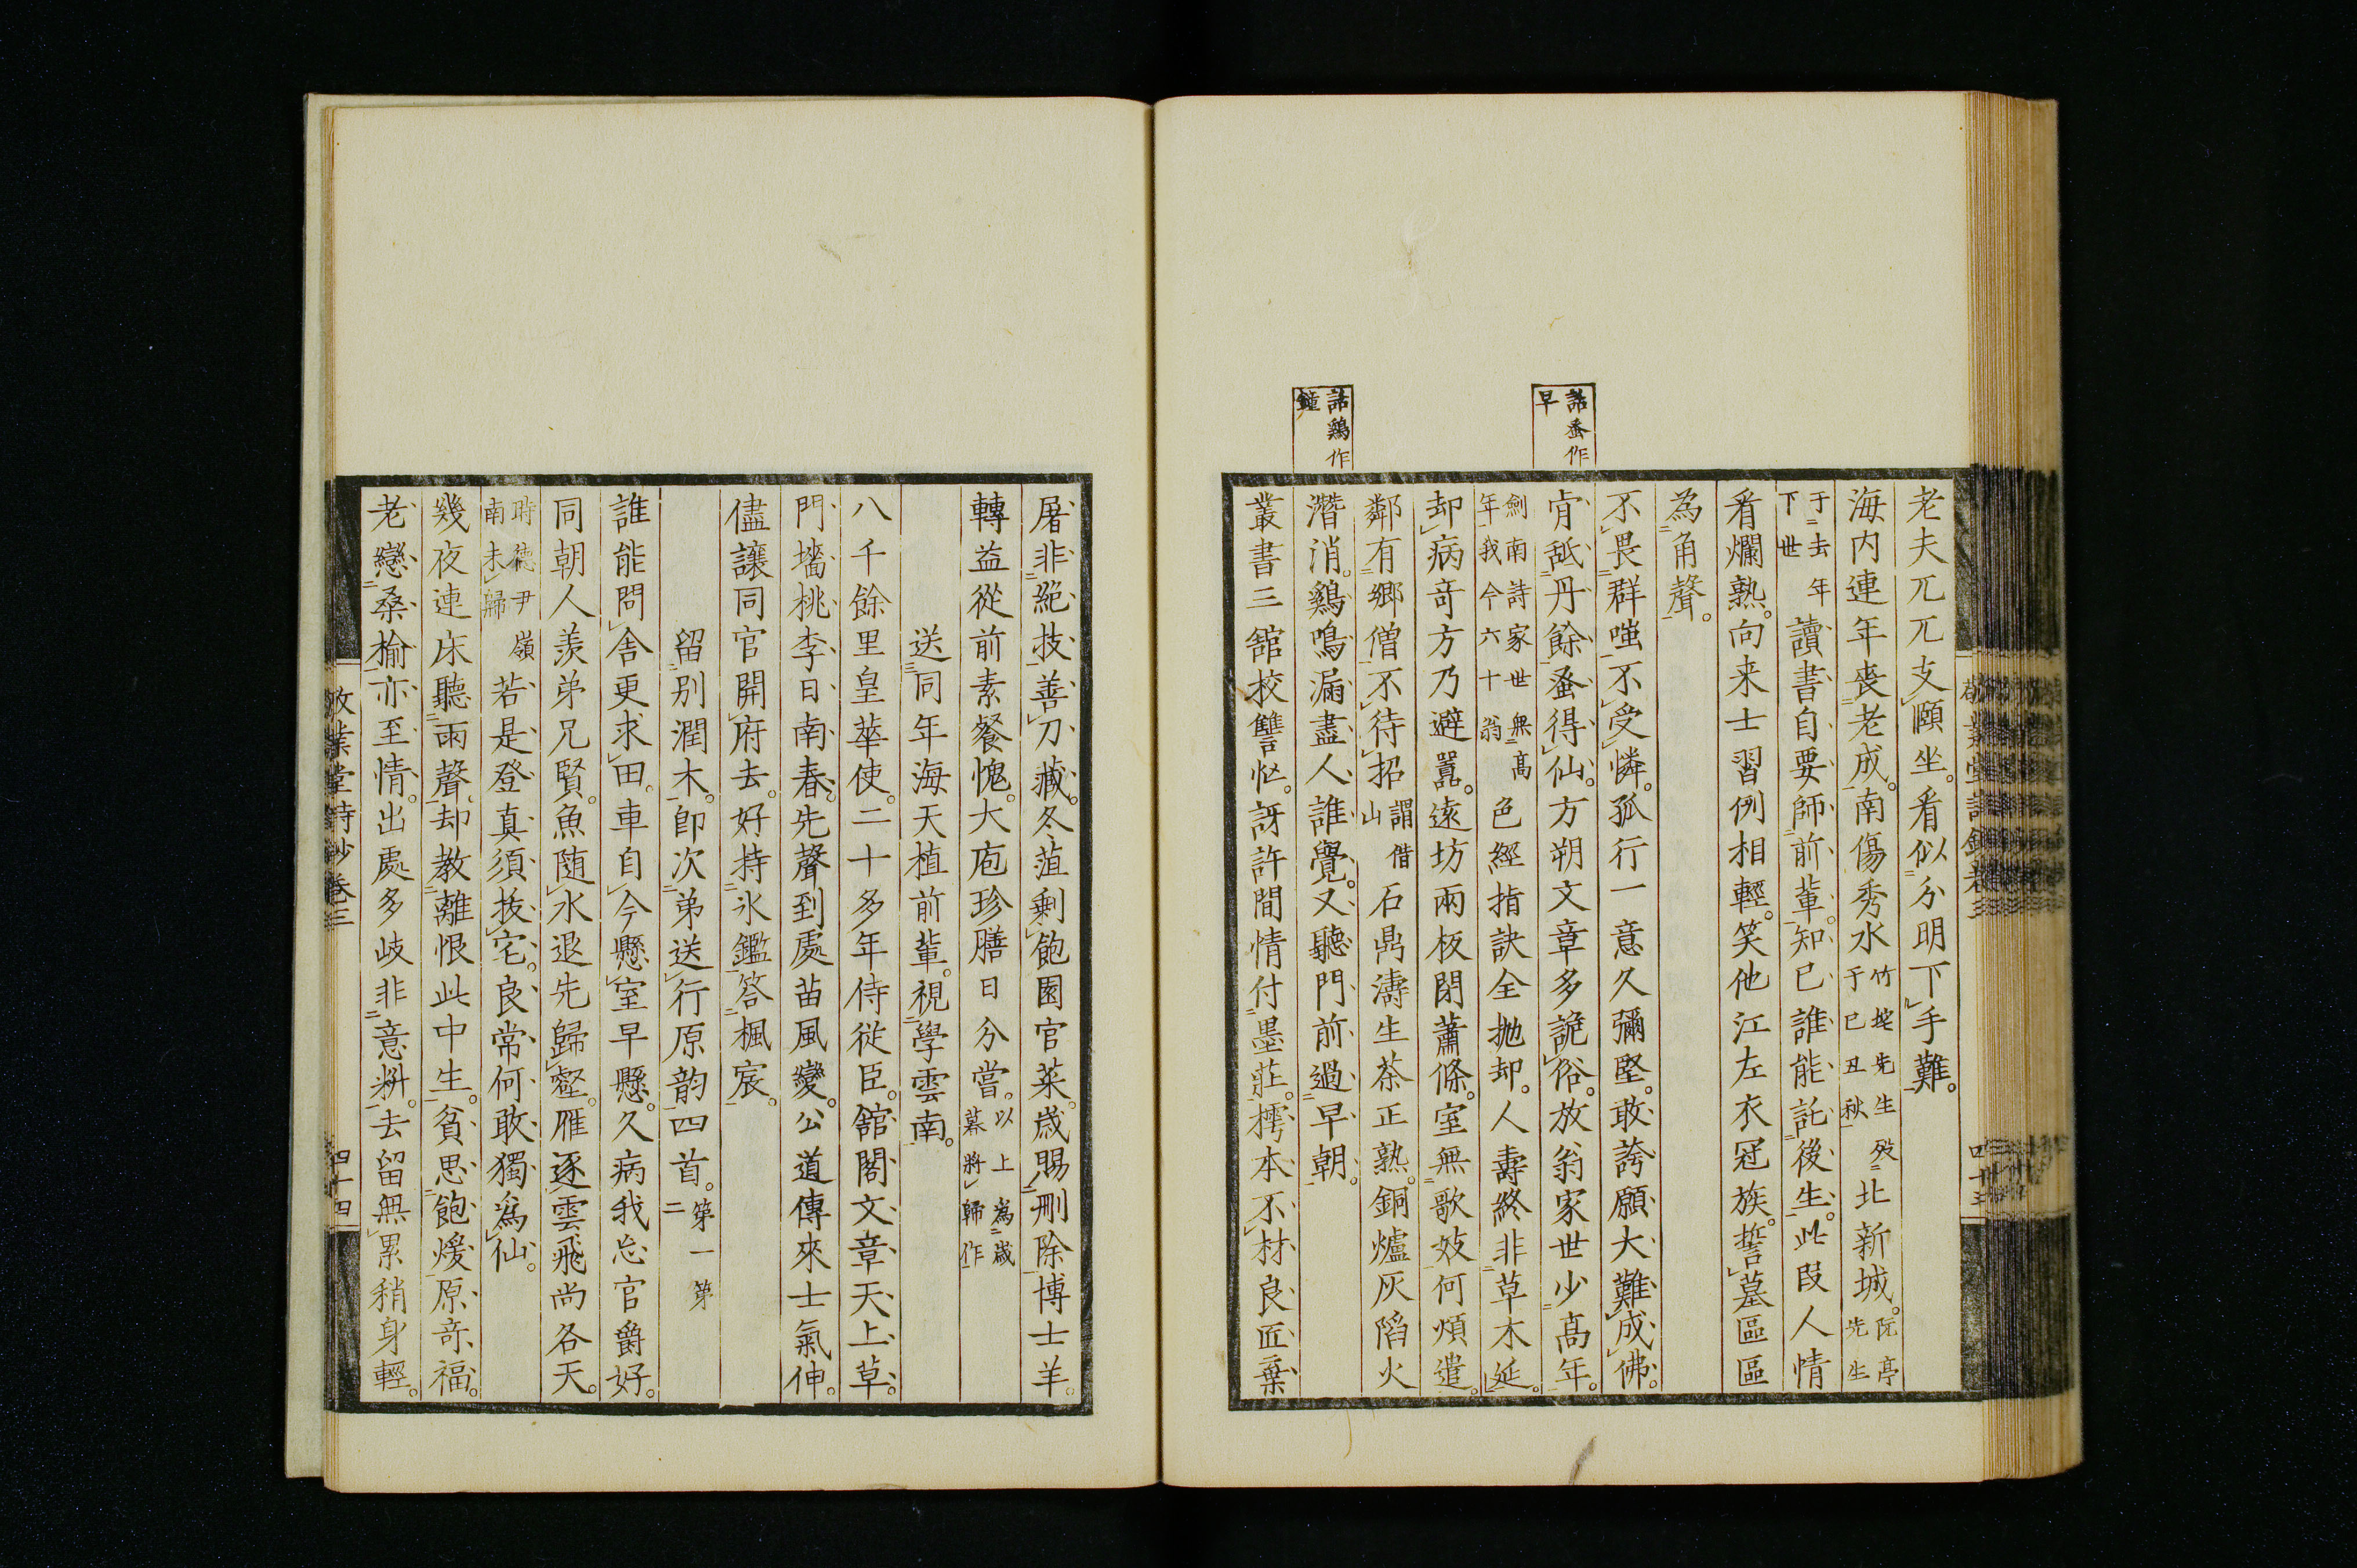 老夫兀兀支頤坐。看似分明下手難。
海内連年喪老成。南傷秀水竹垞先生歿于己丑秋北新城。阮亭先生
于去年下世讀書自要師前輩。知己誰能託後生。此段人情
看爛熟。向来士習例相輕。笑他江左衣冠族。誓墓區區
為角聲。
不畏群嗤不受憐。孤行一意久彌堅。敢誇願大難成佛。
肯舐丹餘蚤得仙。方朔文章多詭俗。放翁家世少高年。
劍南詩家世無高年我今六十翁色經指訣全拋却。人壽終非草木延。
却病奇方乃避囂。遠坊兩板閉蕭條。室無歌妓何煩遣。
鄰有鄉僧不待招謂借山石鼎濤生茶正熟。銅爐灰陷火
潛消。鷄鳴漏盡人誰覺。又聽門前過早朝。
叢書三舘挍讐忙。訝許閒情付墨莊。樗本不材良匠棄
詁蚤作早
詁鷄作鐘
敬業堂詩鈔卷三
四十三
屠非絶技善刀藏。冬菹剩飽園官菜。歲賜刪除博士羊。
轉益從前素餐愧。大庖珍膳日分嘗。以上為歲暮將歸作
送同年海天植前輩。視學雲南。
八千餘里皇華使。二十多年侍從臣。舘閣文章天上草。
門墻桃李日南春。先聲到處苗風變。公道傳來士氣伸。
儘讓同官開府去。好持氷鑑答楓宸。
留別潤木。卽次弟送行原韵四首。第一第二
誰能問舍更求田。車自今懸室早懸。久病我忘官爵好。
同朝人羨弟兄賢。魚随水退先歸壑。雁逐雲飛尚各天。
時德尹嶺南未歸若是登真須拔宅。良常何敢獨爲仙。
幾夜連床聽雨聲。却教離恨此中生。貧思飽煖原竒福。
老戀桑榆亦至情。出處多岐非意料。去留無累稍身輕。
敬業堂詩鈔卷三
四十四